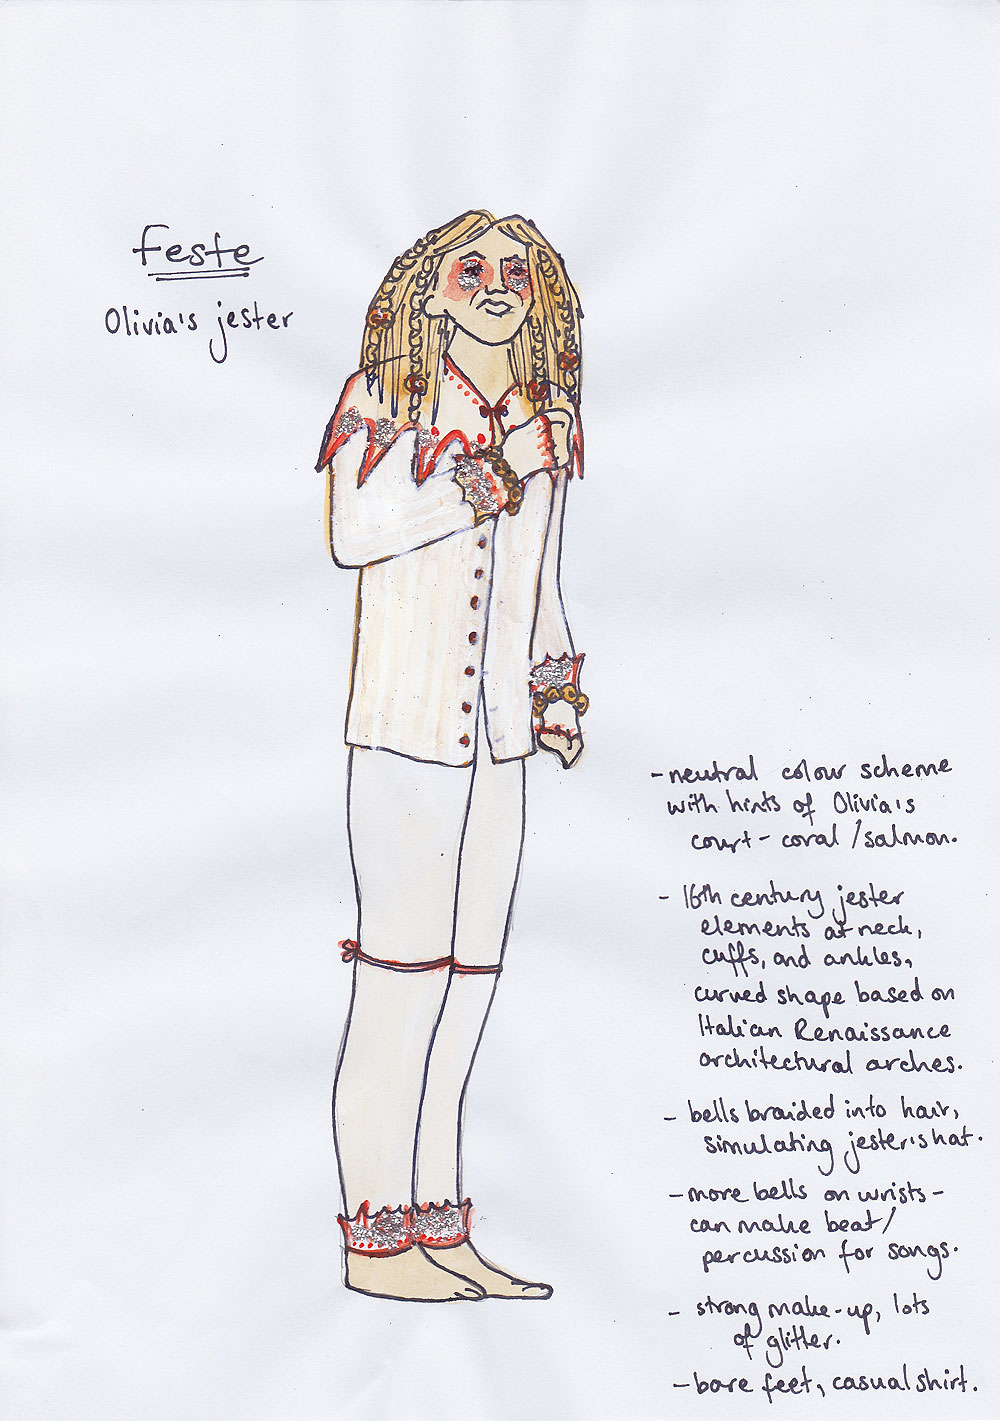 Feste
Olivia's jester
- neutral colour scheme
with hints of Olivia's
court - coral / salmon.
- 16th century jester
elements at neck,
cuffs, and ankles,
curved shape based on
Italian Renaissance
architectural arches.
- bells braided into hair,
simulating jester's hat.
- more bells on wrists -
can make beat /
percussion for songs.
- strong make-up, lots
of glitter.
- bare feet, casual shirt.